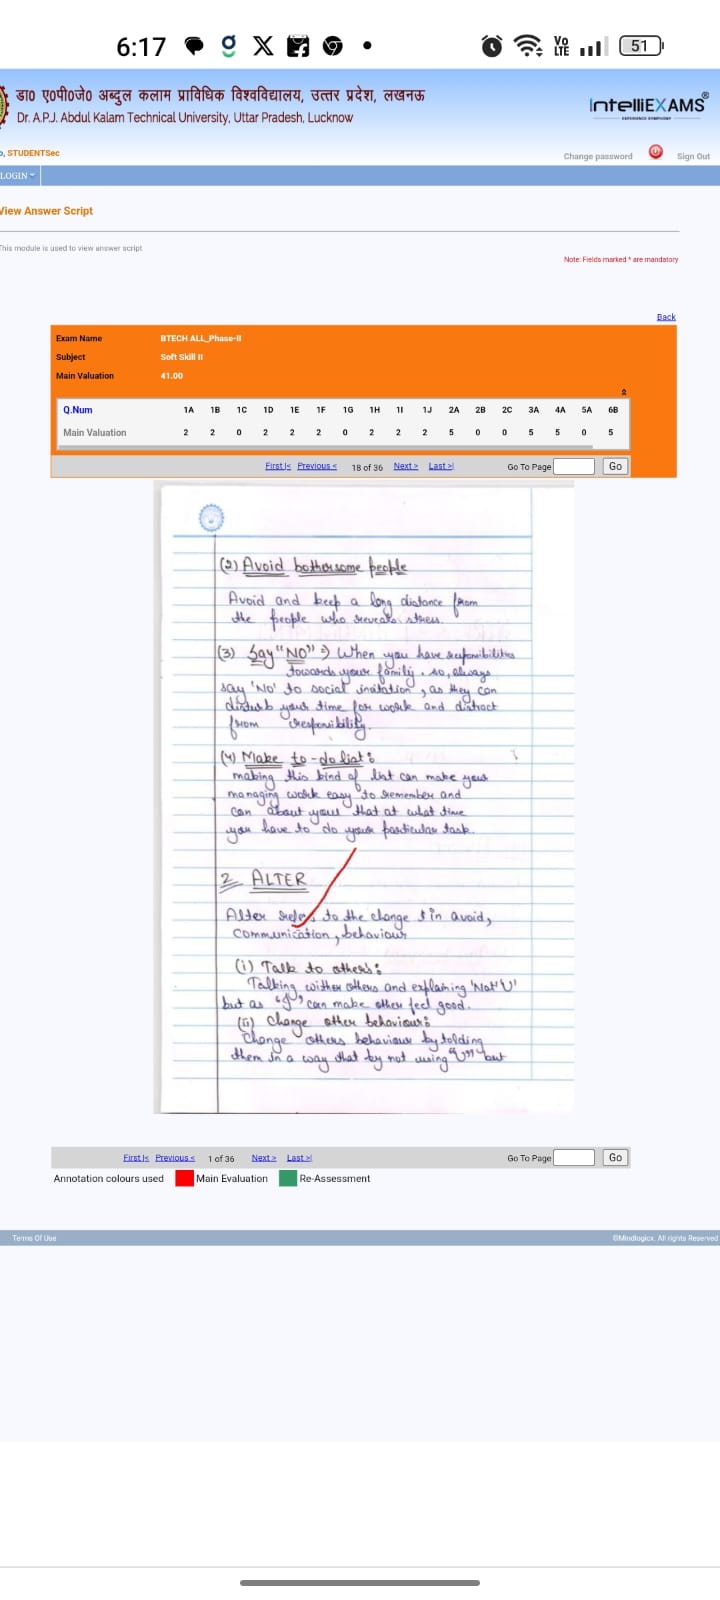 6:17
Vo LTE
51
डा० ए०पी०जे० अब्दुल कलाम प्राविधिक विश्वविद्यालय, उत्तर प्रदेश, लखनऊ
Dr. A.P.J. Abdul Kalam Technical University, Uttar Pradesh, Lucknow
IntelliEXAMS®
o, STUDENTSec
Change password
Sign Out
LOGIN
View Answer Script
This module is used to view answer script
Note: Fields marked * are mandatory
Back
Exam Name BTECH ALL_Phase-II
Subject Soft Skill II
Main Valuation 41.00
Q.Num 1A 1B 1C 1D 1E 1F 1G 1H 1I 1J 2A 2B 2C 3A 4A 5A 6B
Main Valuation 2 2 0 2 2 2 0 2 2 2 5 0 0 5 5 0 5
First|< Previous < 18 of 36 Next > Last >| Go To Page Go
(2) Avoid bothersome people
Avoid and keep a long distance from
the people who reveals stress.
(3) Say "NO" ⇒ When you have responsibilities
towards your family. so, always
say 'NO' to social initation, as they can
disturb your time for work and distract
from responibility.
(4) Make to-do list:
making this kind of list can make your
managing work easy to remember and
can about your that at what time
you have to do your particular task.
2. ALTER
Alter refers to the change in avoid,
communication, behaviour
(i) Talk to others:
Talking with others and explaining 'Not 'U'
but as "I" can make other feel good.
(ii) Change other behaviour:
Change others behaviour by tolding
them in a way that by not using "U" but
First|< Previous < 1 of 36 Next > Last >| Go To Page Go
Annotation colours used Main Evaluation Re-Assessment
Terms Of Use ©Mindlogicx. All rights Reserved